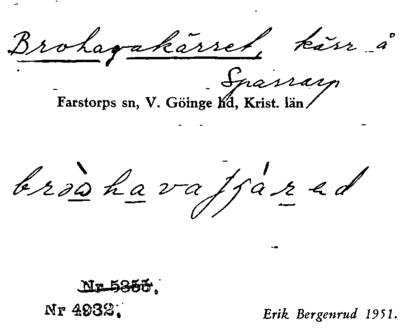 Brohagakärret, kärr å
Sparrarp
Farstorps sn, V. Göinge hd, Krist. län
Nr 5355.
Nr 4932.
Erik Bergenrud 1951.